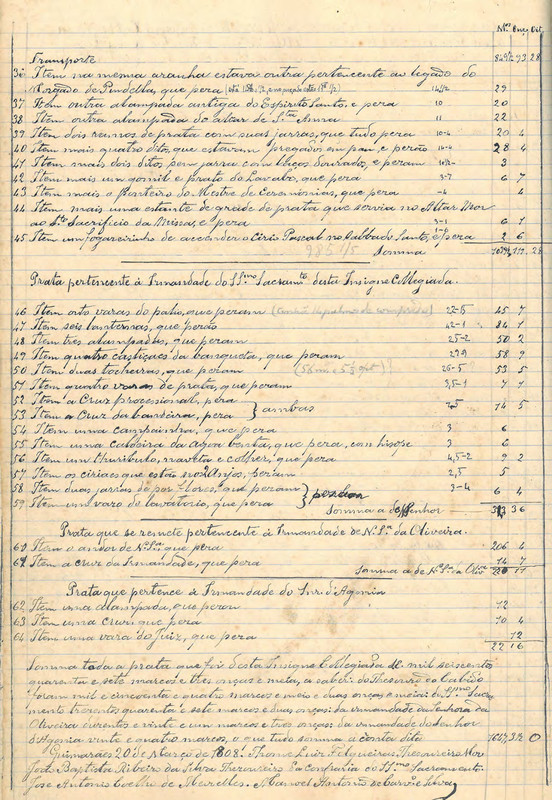 N.os Onç. Oit.
Transporte 849 1/2 93 28
36 Item na mesma aranha estava outra pertencente ao legado do
Morgado de Pindella, que pera 29
37 Item outra alampada antiga do Espirito Santo, e pera 10 20
38 Item outra alampada do altar de S.ta Anna 11 22
39 Item dois ramos de prata com suas jarras, que tudo pera 10-4 20 4
40 Item mais quatro ditos, que estavam pregados em pau, e perão 14-4 28 4
41 Item mais dois ditos, sem jarra com laços dourados, e peram 3
42 Item mais um gomil e prato do Lavabo, que pera 3-7 6 7
43 Item mais o Ponteiro do Mestre de Ceremonias, que pera -4 4
44 Item mais uma estante de grade de prata que servia no Altar Mor
ao S.to Sacrificio da Missa, e pera 3-1 6 1
45 Item um fogareirinho de accender o Cirio Pascal no Sabbado Santo, e pera 2 6
Somma
Prata pertencente á Irmandade do SS.mo Sacram.to desta Insigne Collegiada.
46 Item oito varas do palio, que peram 45 7
47 Item seis lanternas, que perão 42-1 84 1
48 Item tres alampadas, que peram 25-2 50 2
49 Item quatro castiçaes da banqueta, que peram 58 9
50 Item duas tocheiras, que peram 26-5 53 5
51 Item quatro varas de prata, que peram 3,5-1 7 1
52 Item a Cruz processional, pera
53 Item a Cruz da bandeira, pera } ambas 14 5
54 Item uma campainha, que pera 3 6
55 Item uma caldeira da agoa benta, que pera, com hisope 3 6
56 Item um thuribulo, naveta e colher, que pera 4,5-2 9 2
57 Item os ciriaes que estão nos 2 Anjos, peram 2,5 5
58 Item duas jarras de por flores, que peram
59 Item um vaso do lavatorio, que pera 3-4 6 4
Somma a do Senhor 36
Prata que se remete pertencente á Irmandade de N. S.ra da Oliveira.
60 Item o andor de N. S.ra que pera 206 4
61 Item a cruz da Irmandade, que pera 14 7
Somma a de N. S.ra da Oliv.a 11
Prata que pertence á Irmandade do Snr. d'Agonia
62 Item uma alampada, que peram 12
63 Item uma cruz que pera 10 4
64 Item uma vara do Juiz, que pera 12
22 16
Somma toda a prata que foi desta Insigne Collegiada M. mil seiscentos
quarenta e sete marcos e tres onças e meia, a saber: do Thesouro do Cabido
foram mil e cincoenta e quatro marcos e meio e duas onças e meia: do S.mo Sacra-
mento trezentos quarenta e sete marcos e duas onças: da irmandade da Senhora da
Oliveira duzentos e vinte e um marcos e tres onças: da irmandade do Senhor
d'Agonia vinte e quatro marcos, o que tudo somma a conta dita
Guimarães 20 de Março de 1808. Luiz Felgueiras Thesoureiro Mor
João Baptista Ribeiro da Silva Thezoureiro da confraria do SS.mo Sacramento.
José Antonio Coelho de Meirelles. Manoel Antonio de Carv.o e Silva